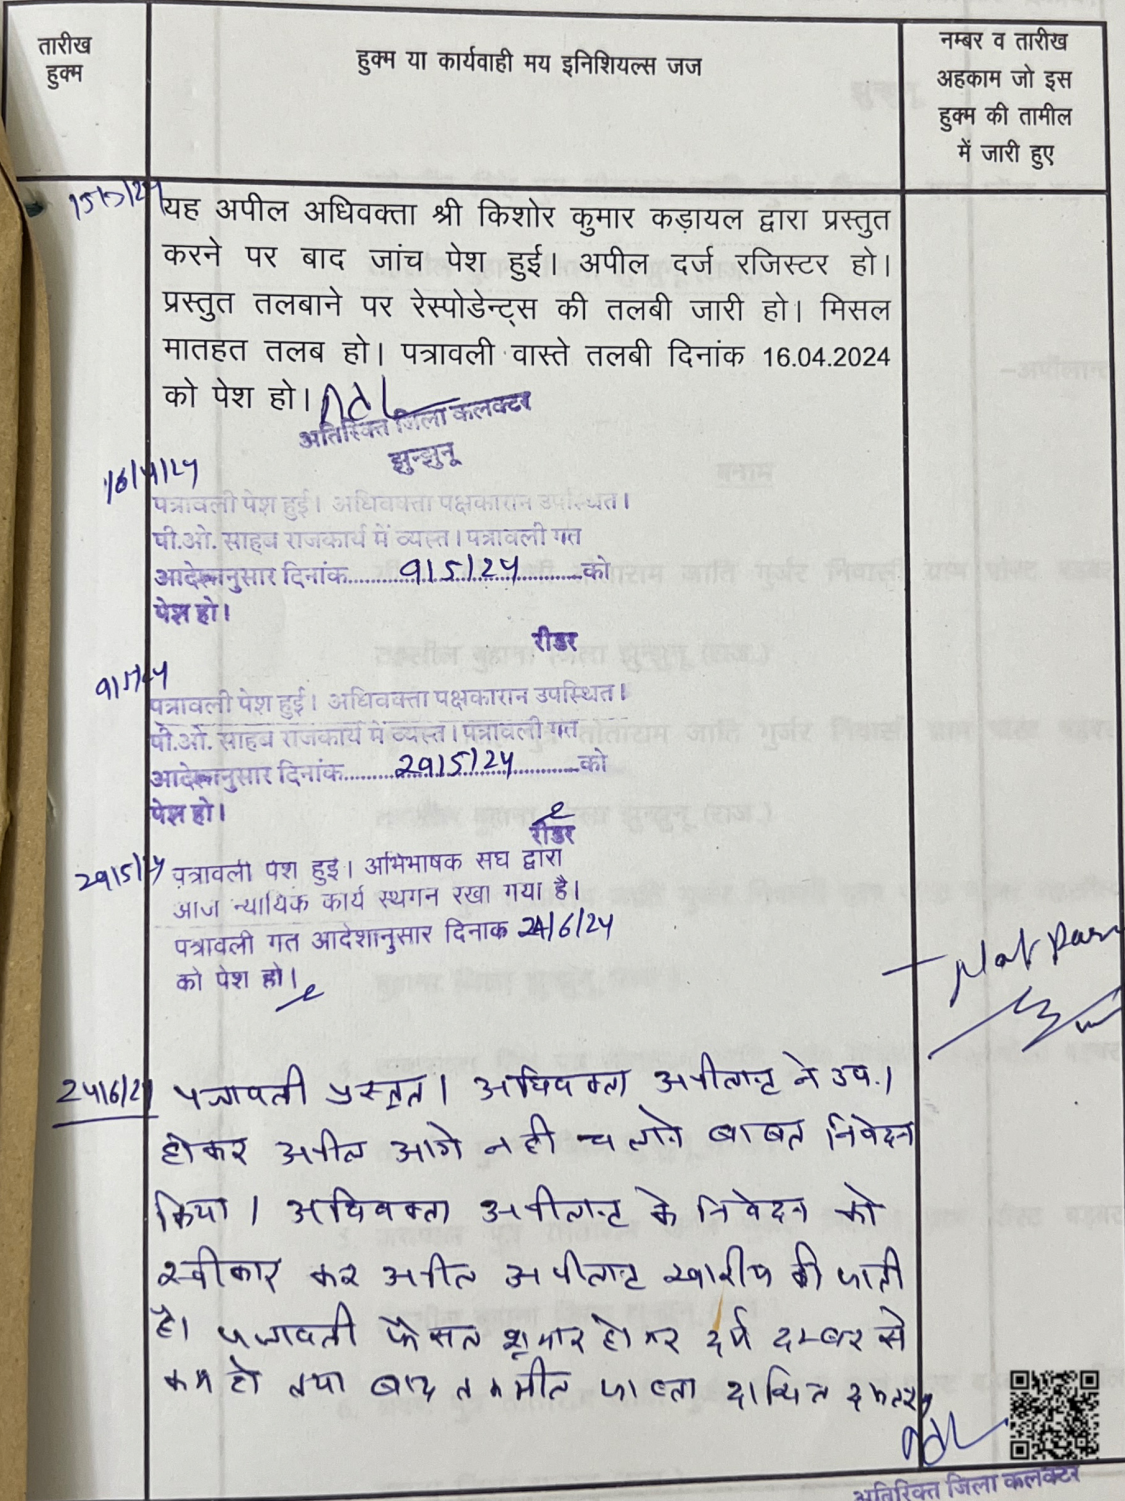 तारीख
हुक्म
हुक्म या कार्यवाही मय इनिशियल्स जज
नम्बर व तारीख
अहकाम जो इस
हुक्म की तामील
में जारी हुए
यह अपील अधिवक्ता श्री किशोर कुमार कड़ायल द्वारा प्रस्तुत
करने पर बाद जांच पेश हुई। अपील दर्ज रजिस्टर हो।
प्रस्तुत तलबाने पर रेस्पोडेन्ट्स की तलबी जारी हो। मिसल
मातहत तलब हो। पत्रावली वास्ते तलबी दिनांक 16.04.2024
को पेश हो।
अतिरिक्त जिला कलक्टर
झुन्झुनू
16/4/24
पत्रावली पेश हुई। अधिवक्ता पक्षकारान उपस्थित।
पी.ओ. साहब राजकार्य में व्यस्त। पत्रावली गत
आदेशानुसार दिनांक 9/5/24 को
पेश हो।
रीडर
9/5/24
पत्रावली पेश हुई। अधिवक्ता पक्षकारान उपस्थित।
पी.ओ. साहब राजकार्य में व्यस्त। पत्रावली गत
आदेशानुसार दिनांक 29/5/24 को
पेश हो।
रीडर
29/5/24 पत्रावली पेश हुई। अभिभाषक संघ द्वारा
आज न्यायिक कार्य स्थगन रखा गया है।
पत्रावली गत आदेशानुसार दिनांक 24/6/24
को पेश हो।
24/6/24 पत्रावली प्रस्तुत। अधिवक्ता अपीलान्ट ने उप.।
होकर अपील आगे नही चलाने बाबत निवेदन
किया। अधिवक्ता अपीलान्ट के निवेदन को
स्वीकार कर अपील अपीलान्ट खारीज की जाती
है। पत्रावली फैसल शुमार होकर दर्ज नम्बर से
कम हो तथा बाद तकमील जाब्ता दाखिल दफ्तर
अतिरिक्त जिला कलक्टर